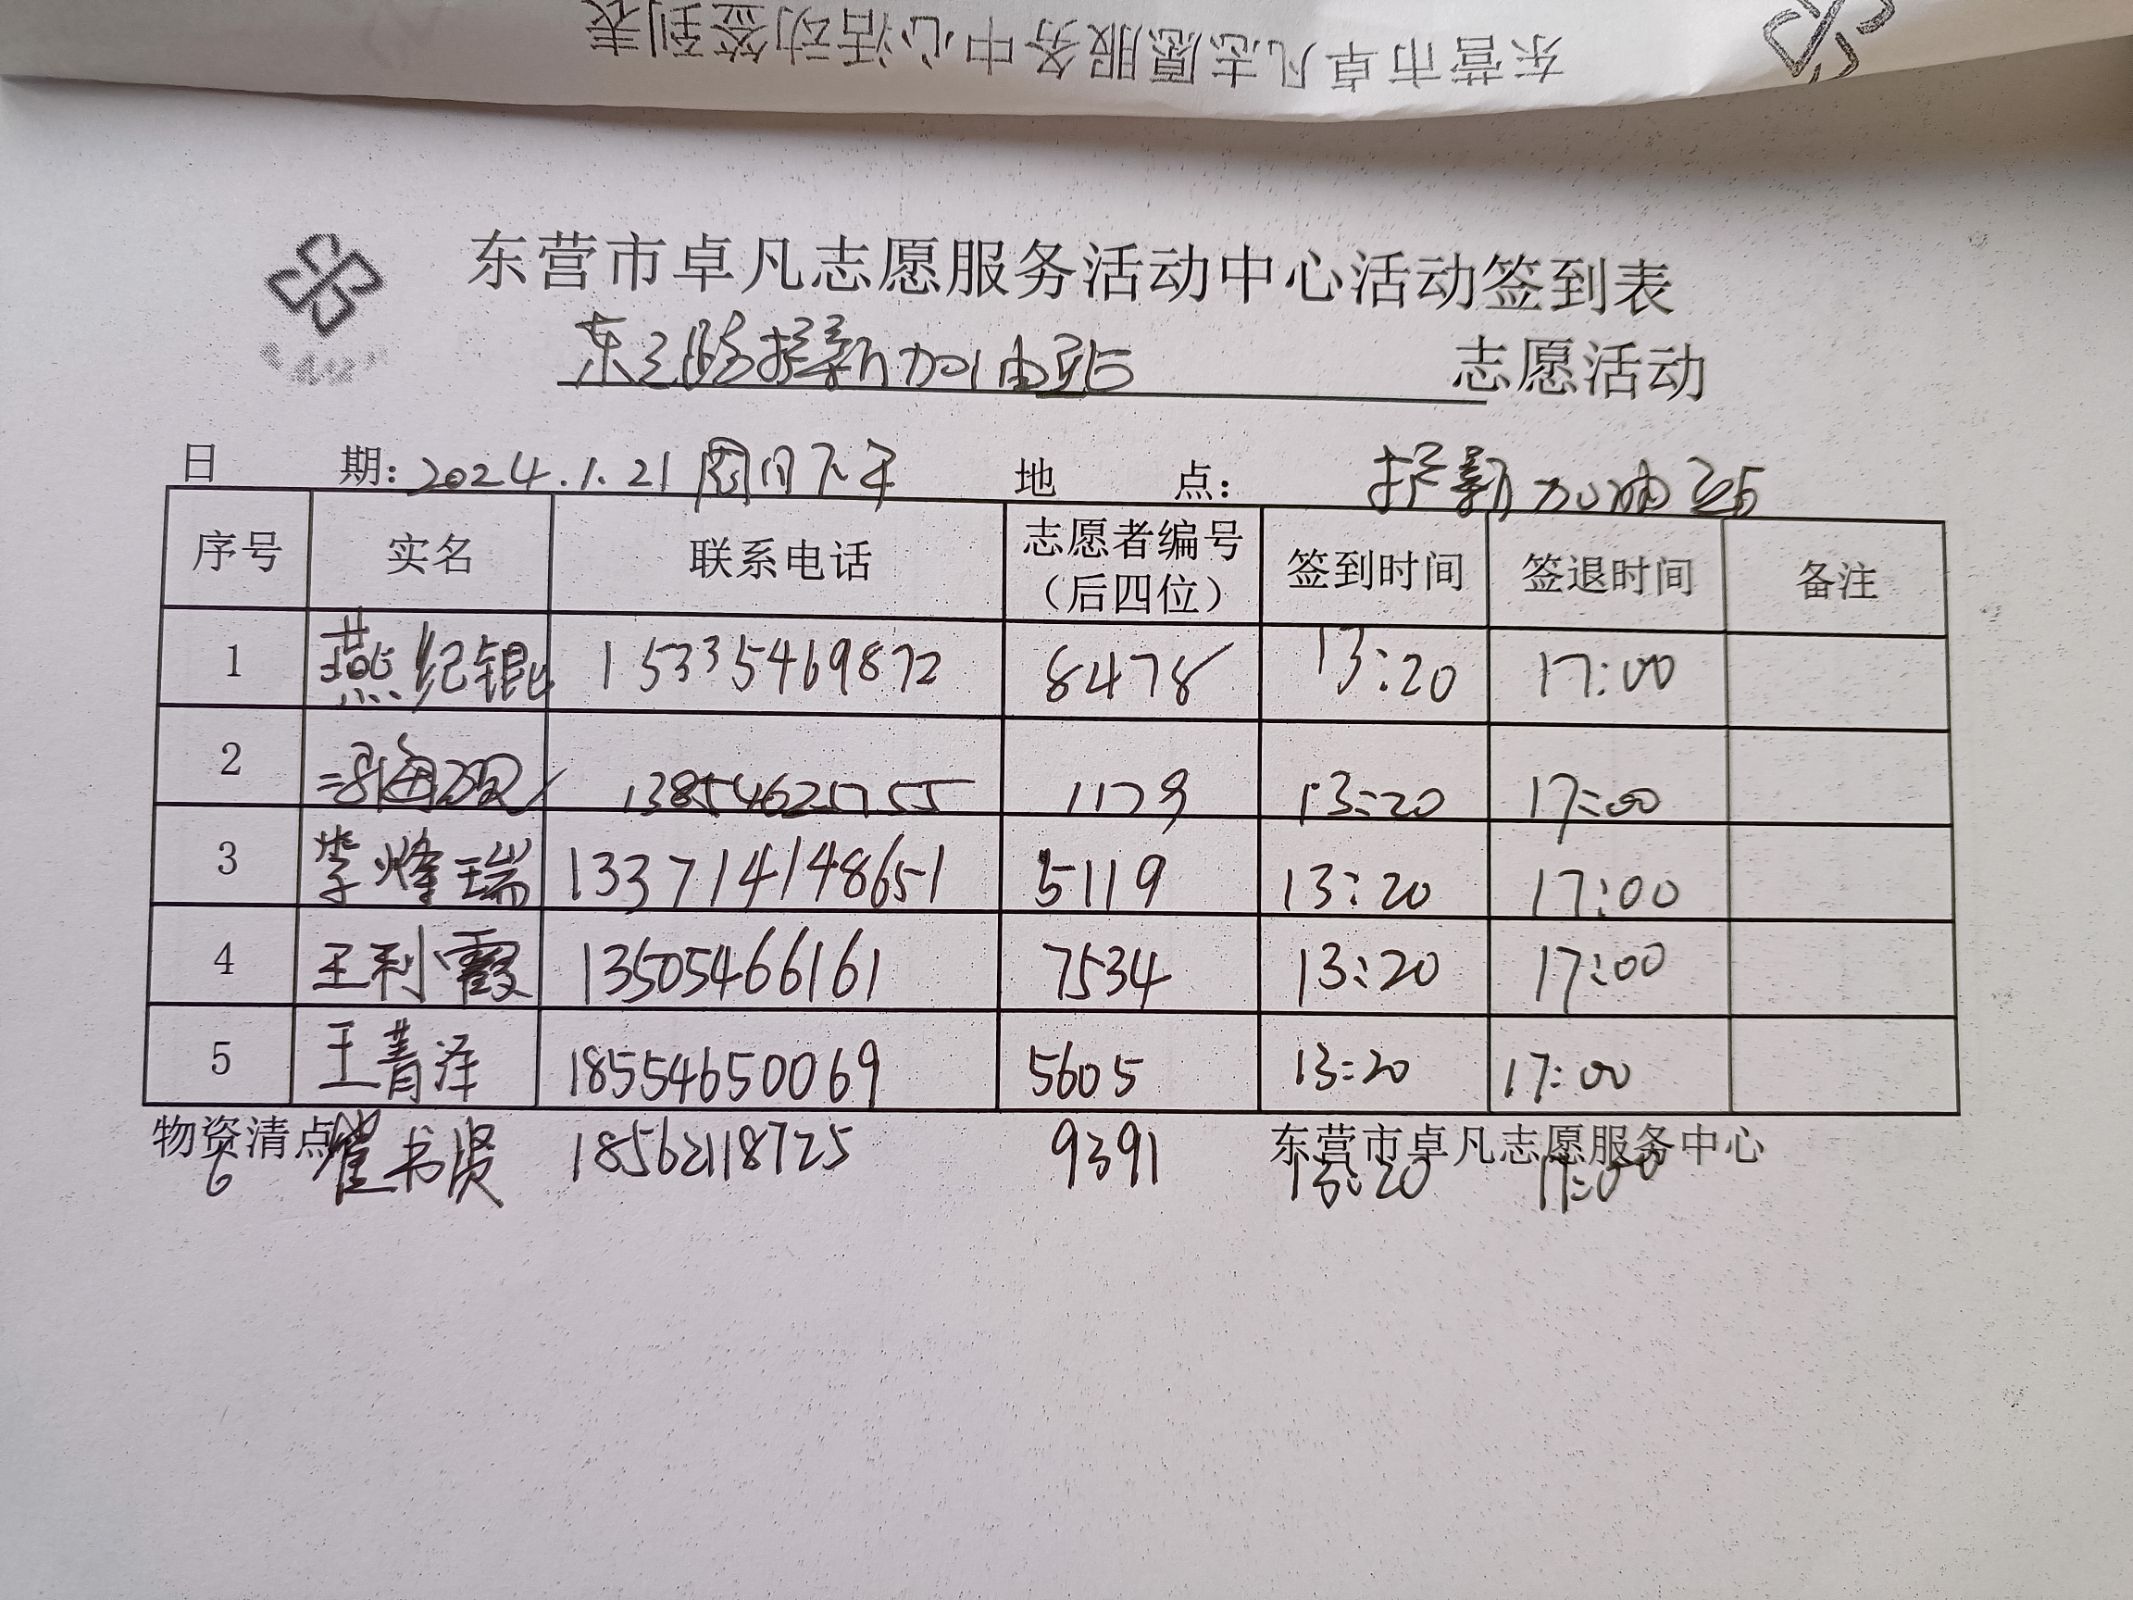 东营市卓凡志愿服务中心活动签到表
东营市卓凡志愿服务活动中心活动签到表
东三路护新加油站 志愿活动
日 期: 2024.1.21 周日下午 地 点: 护新加油站
序号 实名 联系电话 志愿者编号(后四位) 签到时间 签退时间 备注
1 燕纪锟 15335469872 8478 13:20 17:00
2 1385462 55 1179 13:20 17:00
3 李烽瑞 133714148651 5119 13:20 17:00
4 王利霞 13505466161 7534 13:20 17:00
5 王菁泽 18554650069 5605 13:20 17:00
物资清点 东营市卓凡志愿服务中心
6 书贤 18562118725 9391 13:20 17:00